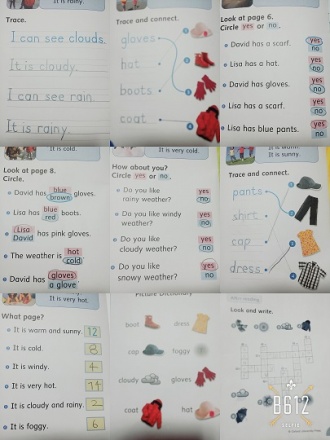 It is rainy.
Trace.
I can see clouds.
It is cloudy.
I can see rain.
It is rainy.
Trace and connect.
gloves
hat
boots
coat
Look at page 6.
Circle yes or no.
David has a scarf. yes no
Lisa has a hat. yes no
David has gloves. yes no
Lisa has a scarf. yes no
Lisa has blue pants. yes no
It is cold.
Look at page 8.
Circle.
David has blue brown gloves.
Lisa has blue red boots.
Lisa David has pink gloves.
The weather is hot cold
David has gloves a glove
It is very cold.
How about you?
Circle yes or no.
Do you like rainy weather? yes no
Do you like windy weather? yes no
Do you like cloudy weather? yes no
Do you like snowy weather? yes no
It is warm.
It is sunny.
Trace and connect.
pants
shirt
cap
dress
It is very hot.
What page?
It is warm and sunny. 12
It is cold. 8
It is windy. 4
It is very hot. 14
It is cloudy and rainy. 2
It is foggy. 6
Picture Dictionary
boot dress
cap foggy
cloudy gloves
coat hat
Look and write.
B612